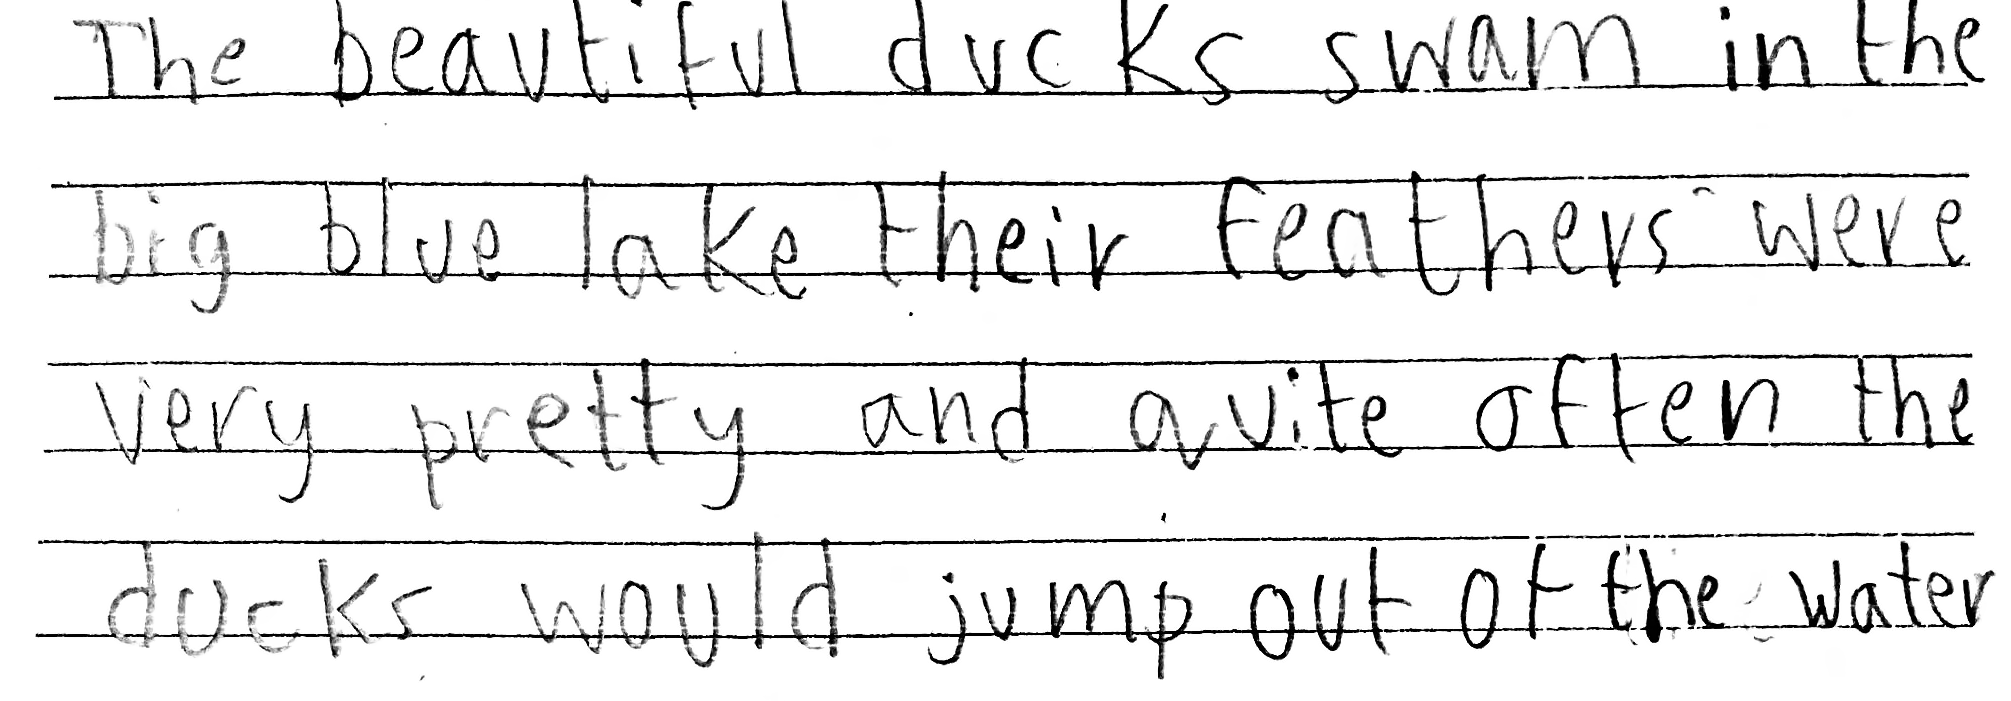 The beautiful ducks swam in the
big blue lake their feathers were
very pretty and quite often the
ducks would jump out of the water